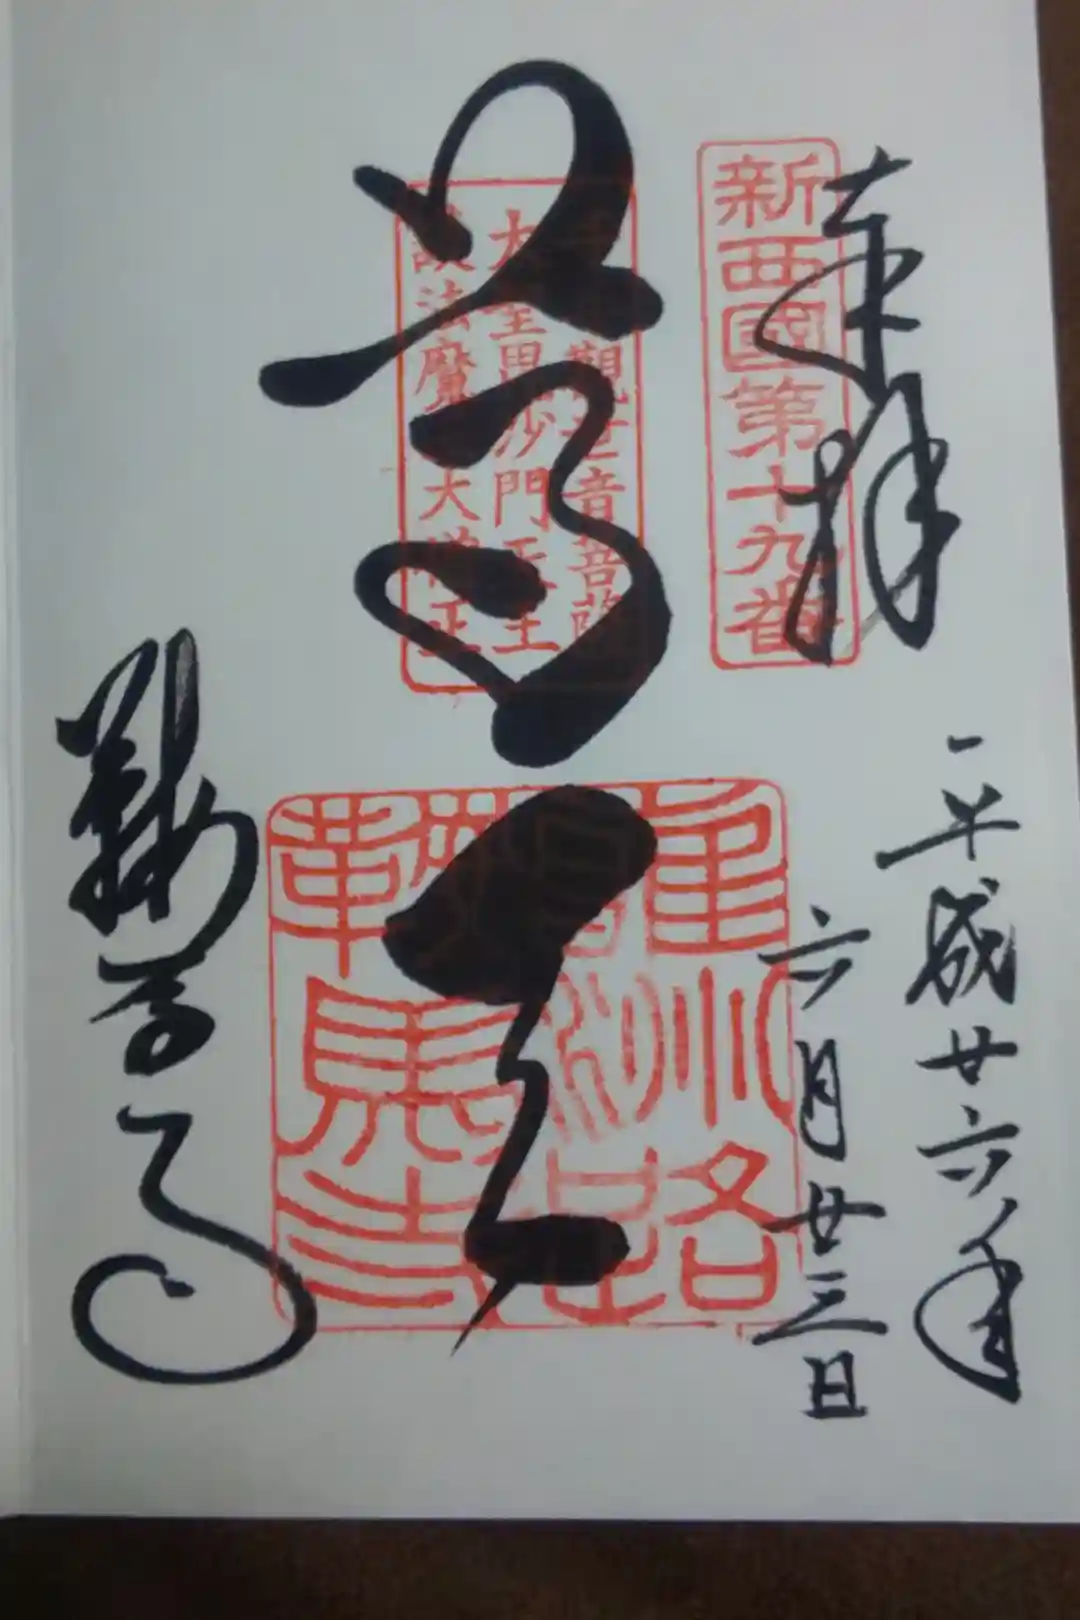 奉拝
新西國第十九番
平成廿六年
六月廿三日
尊天
觀世音菩薩
大聖毘沙門天王
護法魔王大僧正
鞍馬寺
鞍馬寺